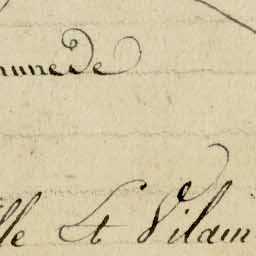 mune de
lle Lt Vilain